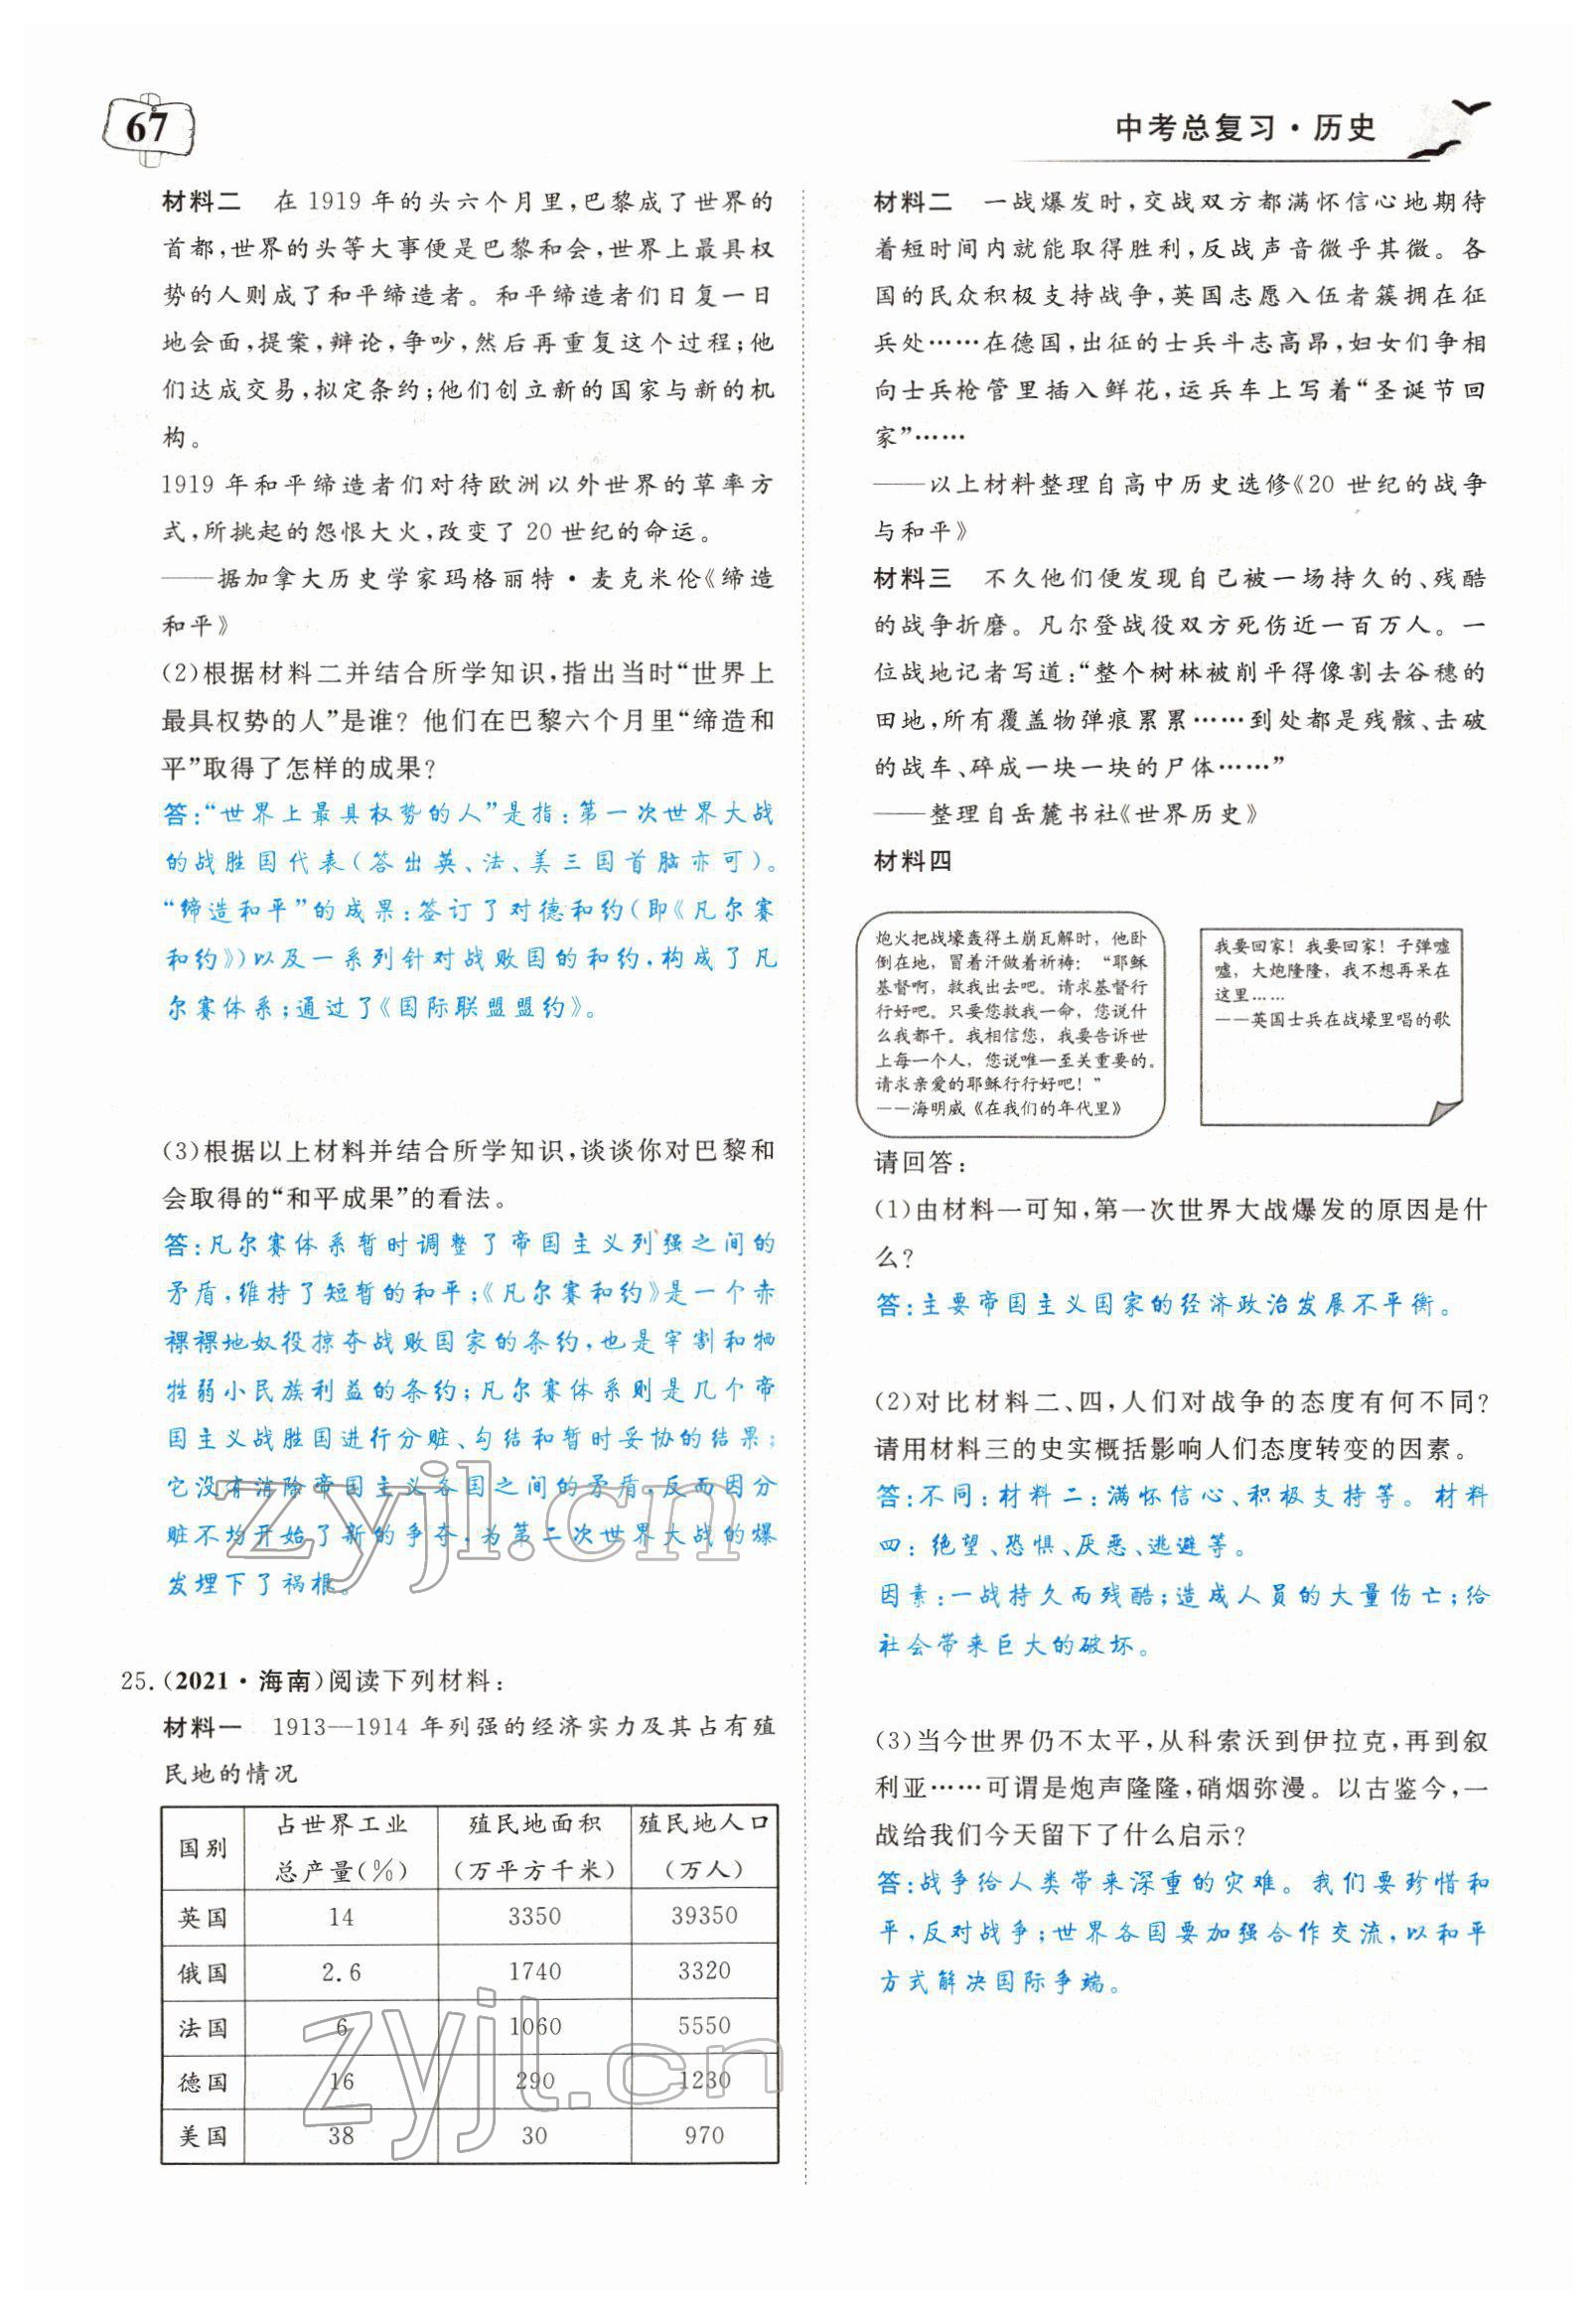 67
中考总复习·历史
材料二　在 1919 年的头六个月里,巴黎成了世界的
首都,世界的头等大事便是巴黎和会,世界上最具权
势的人则成了和平缔造者。和平缔造者们日复一日
地会面,提案,辩论,争吵,然后再重复这个过程;他
们达成交易,拟定条约;他们创立新的国家与新的机
构。
1919 年和平缔造者们对待欧洲以外世界的草率方
式,所挑起的怨恨大火,改变了 20 世纪的命运。
——据加拿大历史学家玛格丽特·麦克米伦《缔造
和平》
(2)根据材料二并结合所学知识,指出当时“世界上
最具权势的人”是谁? 他们在巴黎六个月里“缔造和
平”取得了怎样的成果?
答:“世界上最具权势的人”是指:第一次世界大战
的战胜国代表(答出英、法、美三国首脑亦可)。
“缔造和平”的成果:签订了对德和约(即《凡尔赛
和约》)以及一系列针对战败国的和约,构成了凡
尔赛体系;通过了《国际联盟盟约》。
(3)根据以上材料并结合所学知识,谈谈你对巴黎和
会取得的“和平成果”的看法。
答:凡尔赛体系暂时调整了帝国主义列强之间的
矛盾,维持了短暂的和平;《凡尔赛和约》是一个赤
裸裸地奴役掠夺战败国家的条约,也是宰割和牺
牲弱小民族利益的条约;凡尔赛体系则是几个帝
国主义战胜国进行分赃、勾结和暂时妥协的结果;
它没有消除帝国主义各国之间的矛盾,反而因分
赃不均开始了新的争夺,为第二次世界大战的爆
发埋下了祸根。
zyjl.cn
25.(2021·海南)阅读下列材料:
材料一　1913—1914 年列强的经济实力及其占有殖
民地的情况
国别　占世界工业总产量(%)　殖民地面积(万平方千米)　殖民地人口(万人)
英国　14　3350　39350
俄国　2.6　1740　3320
法国　6　1060　5550
德国　16　290　1230
美国　38　30　970
zyjl.cn
材料二　一战爆发时,交战双方都满怀信心地期待
着短时间内就能取得胜利,反战声音微乎其微。各
国的民众积极支持战争,英国志愿入伍者簇拥在征
兵处……在德国,出征的士兵斗志高昂,妇女们争相
向士兵枪管里插入鲜花,运兵车上写着“圣诞节回
家”……
——以上材料整理自高中历史选修《20 世纪的战争
与和平》
材料三　不久他们便发现自己被一场持久的、残酷
的战争折磨。凡尔登战役双方死伤近一百万人。一
位战地记者写道:“整个树林被削平得像割去谷穗的
田地,所有覆盖物弹痕累累……到处都是残骸、击破
的战车、碎成一块一块的尸体……”
——整理自岳麓书社《世界历史》
材料四
炮火把战壕轰得土崩瓦解时，他卧
倒在地，冒着汗做着祈祷：“耶稣
基督啊，救我出去吧。请求基督行
行好吧。只要您救我一命，您说什
么我都干。我相信您，我要告诉世
上每一个人，您说唯一至关重要的。
请求亲爱的耶稣行行好吧！”
——海明威《在我们的年代里》
我要回家！我要回家！子弹嘘
嘘，大炮隆隆，我不想再呆在
这里……
——英国士兵在战壕里唱的歌
请回答:
(1)由材料一可知,第一次世界大战爆发的原因是什
么?
答:主要帝国主义国家的经济政治发展不平衡。
(2)对比材料二、四,人们对战争的态度有何不同?
请用材料三的史实概括影响人们态度转变的因素。
答:不同:材料二:满怀信心、积极支持等。材料
四: 绝望、恐惧、厌恶、逃避等。
因素:一战持久而残酷;造成人员的大量伤亡;给
社会带来巨大的破坏。
(3)当今世界仍不太平,从科索沃到伊拉克,再到叙
利亚……可谓是炮声隆隆,硝烟弥漫。以古鉴今,一
战给我们今天留下了什么启示?
答:战争给人类带来深重的灾难。我们要珍惜和
平,反对战争;世界各国要加强合作交流,以和平
方式解决国际争端。